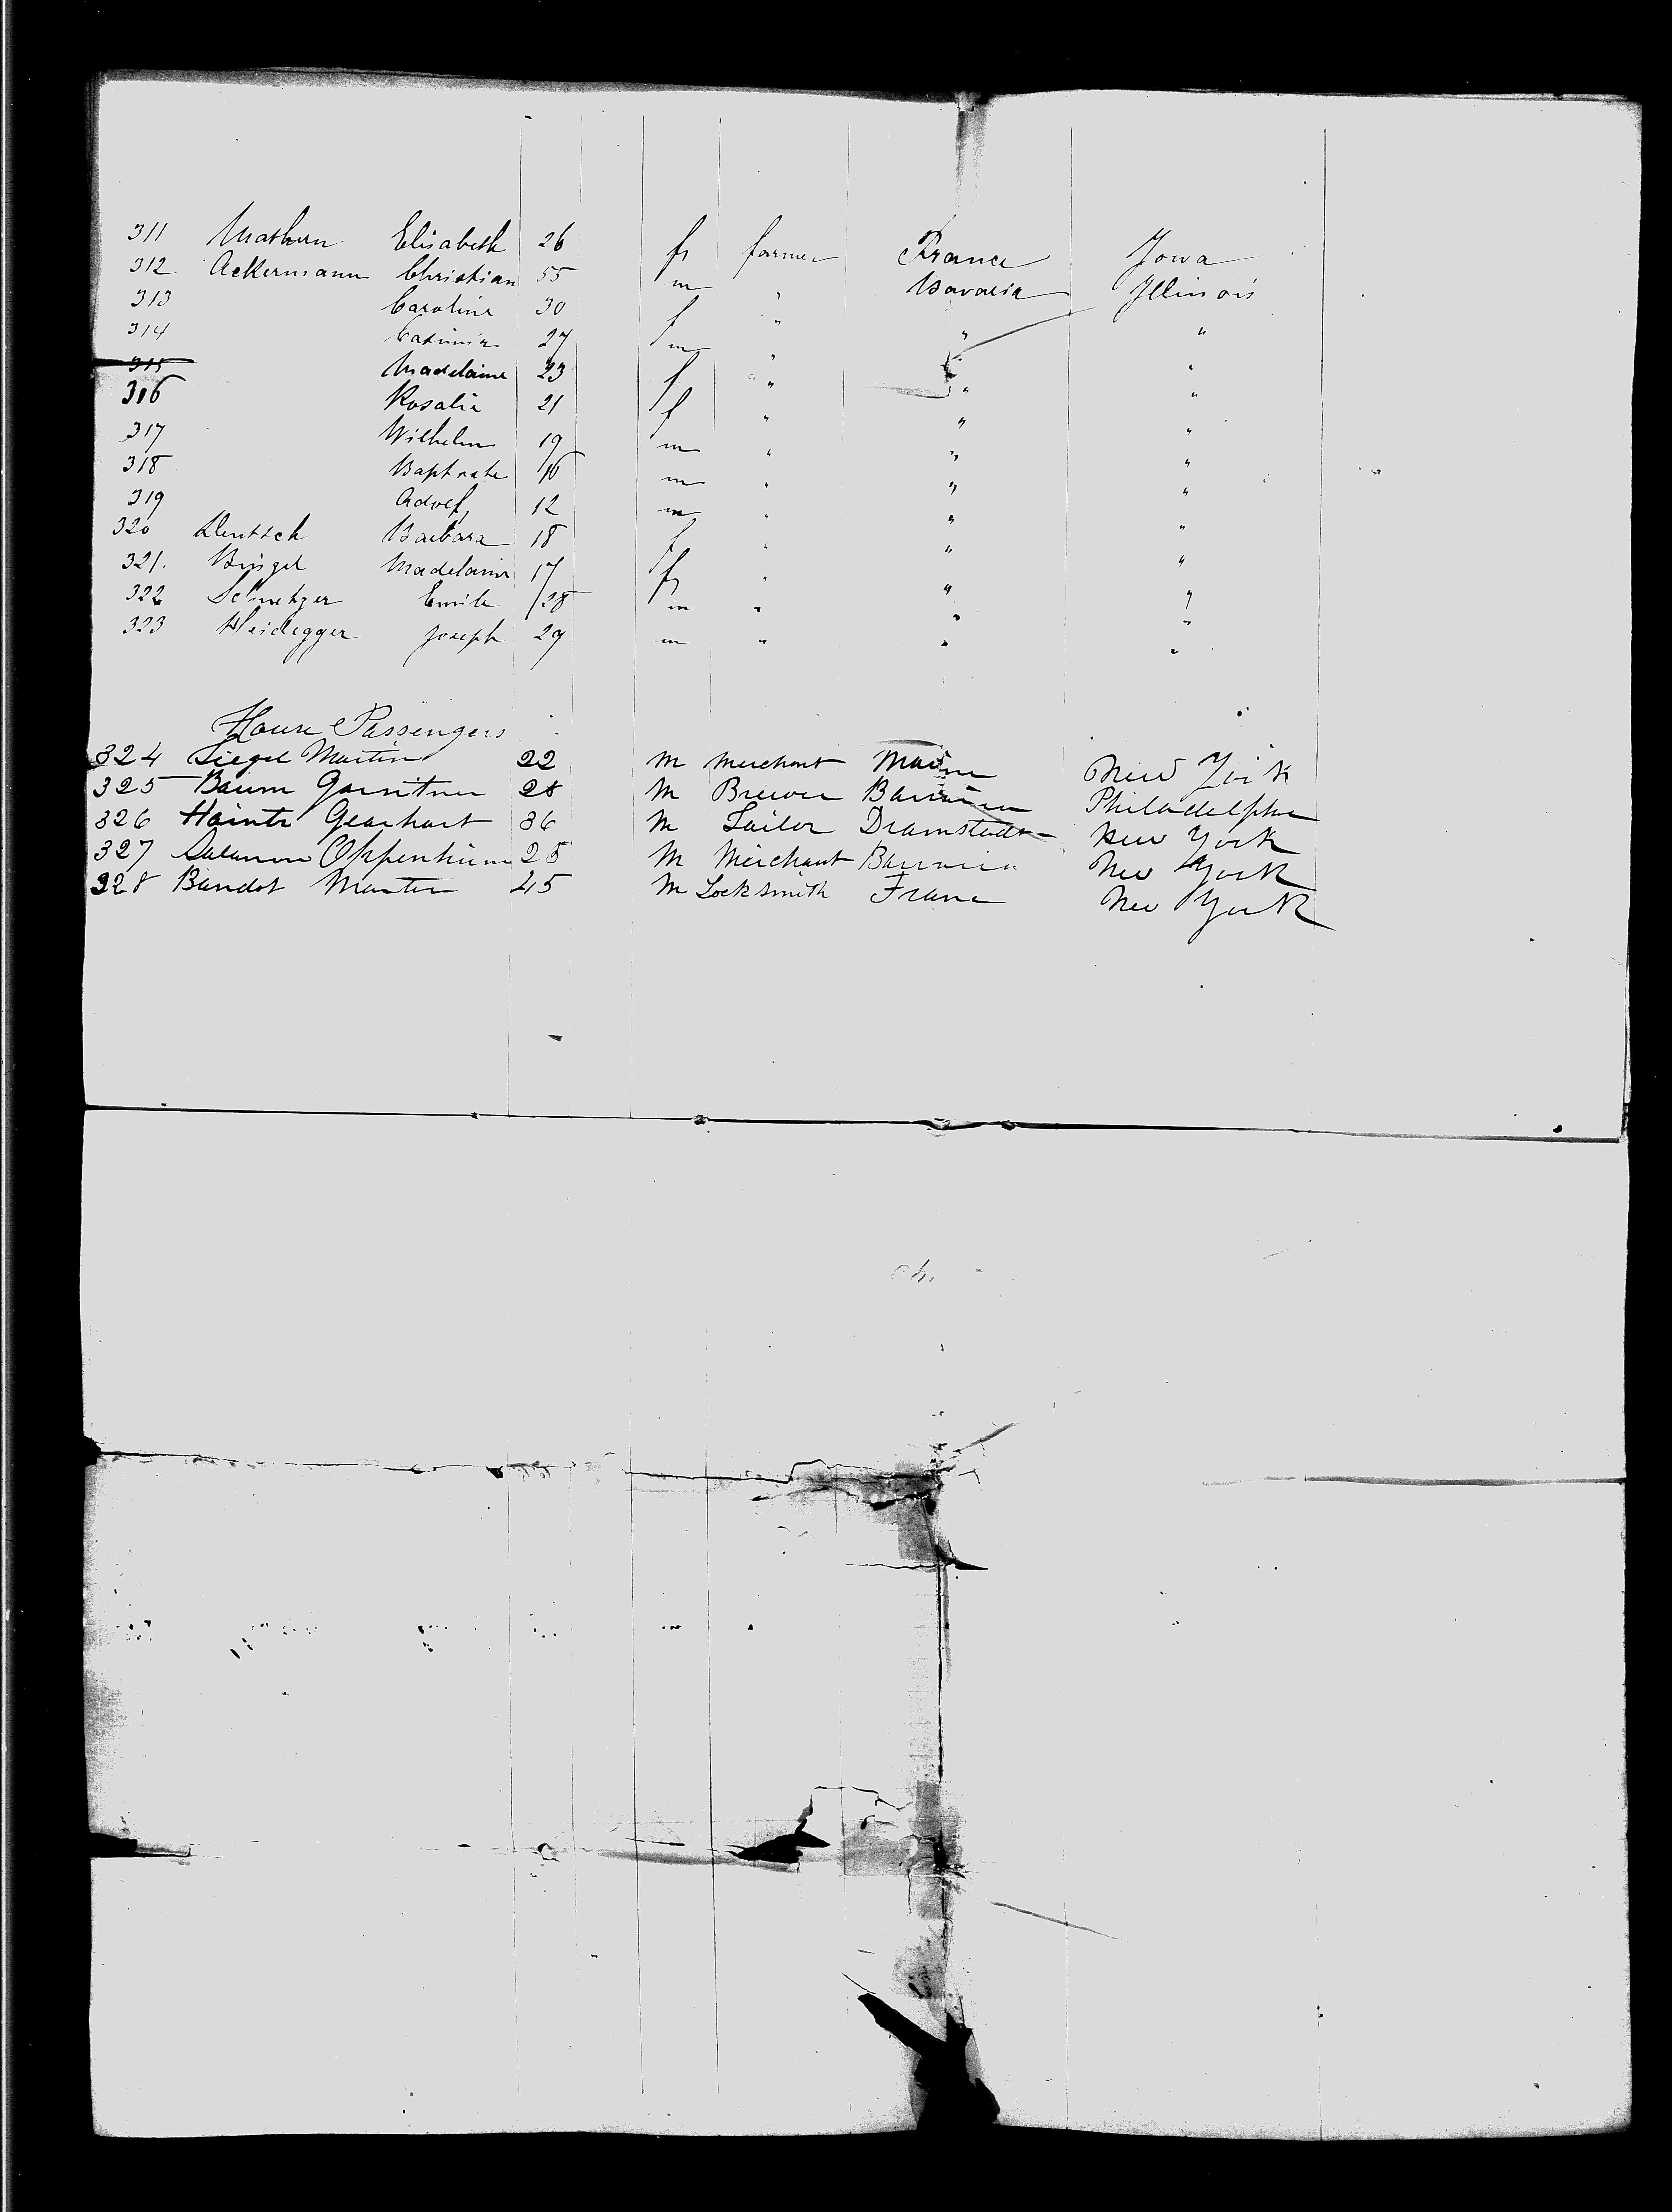 311 Mathern Elisabeth 26 f farmer France Iowa
312 Ackermann Christian 55 m " Bavaria Illinois
313 Caroline 30 f " " "
314 Casimir 27 m " " "
315 Madelaine 23 f " " "
316 Rosalie 21 f " " "
317 Wilhelm 19 m " " "
318 16 m " " "
319 Adolf 12 m " " "
320 Deutsch Barbara 18 f " " "
321. Bingel Madelaine 17 f " " "
322 Schmetzer Emile 28 m " " "
323 Heidegger Joseph 29 m " " "
House Passengers
324 Siegel Martin 22 M Merchant New York
325 Baum 28 M Brewer Philadelphia
326 Gearhart 36 M Tailor Dramstadt New York
327 Oppenhium 25 M Merchant New York
328 Bandot Martin 45 M Locksmith Franc New York